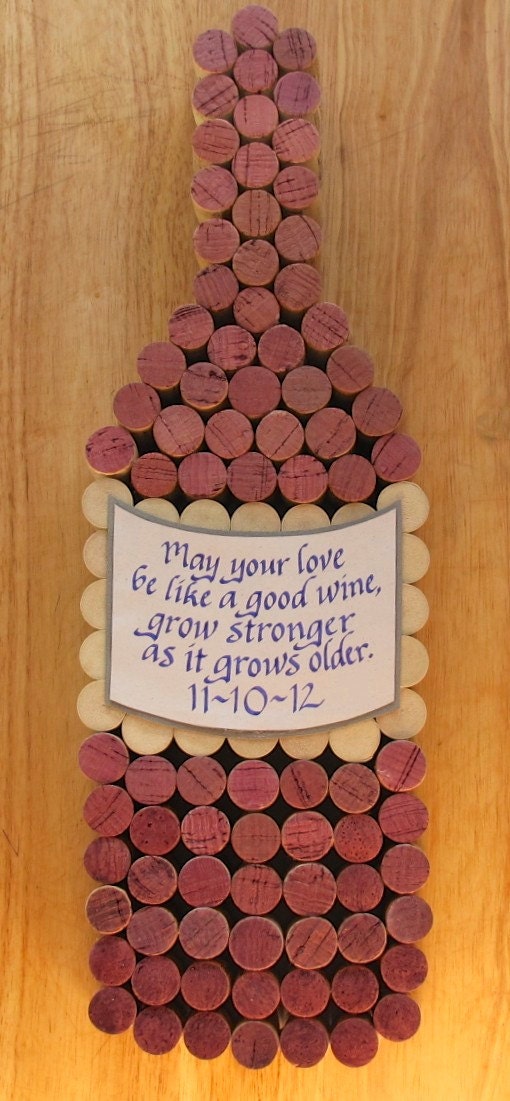 May your love
be like a good wine,
grow stronger
as it grows older.
11~10~12